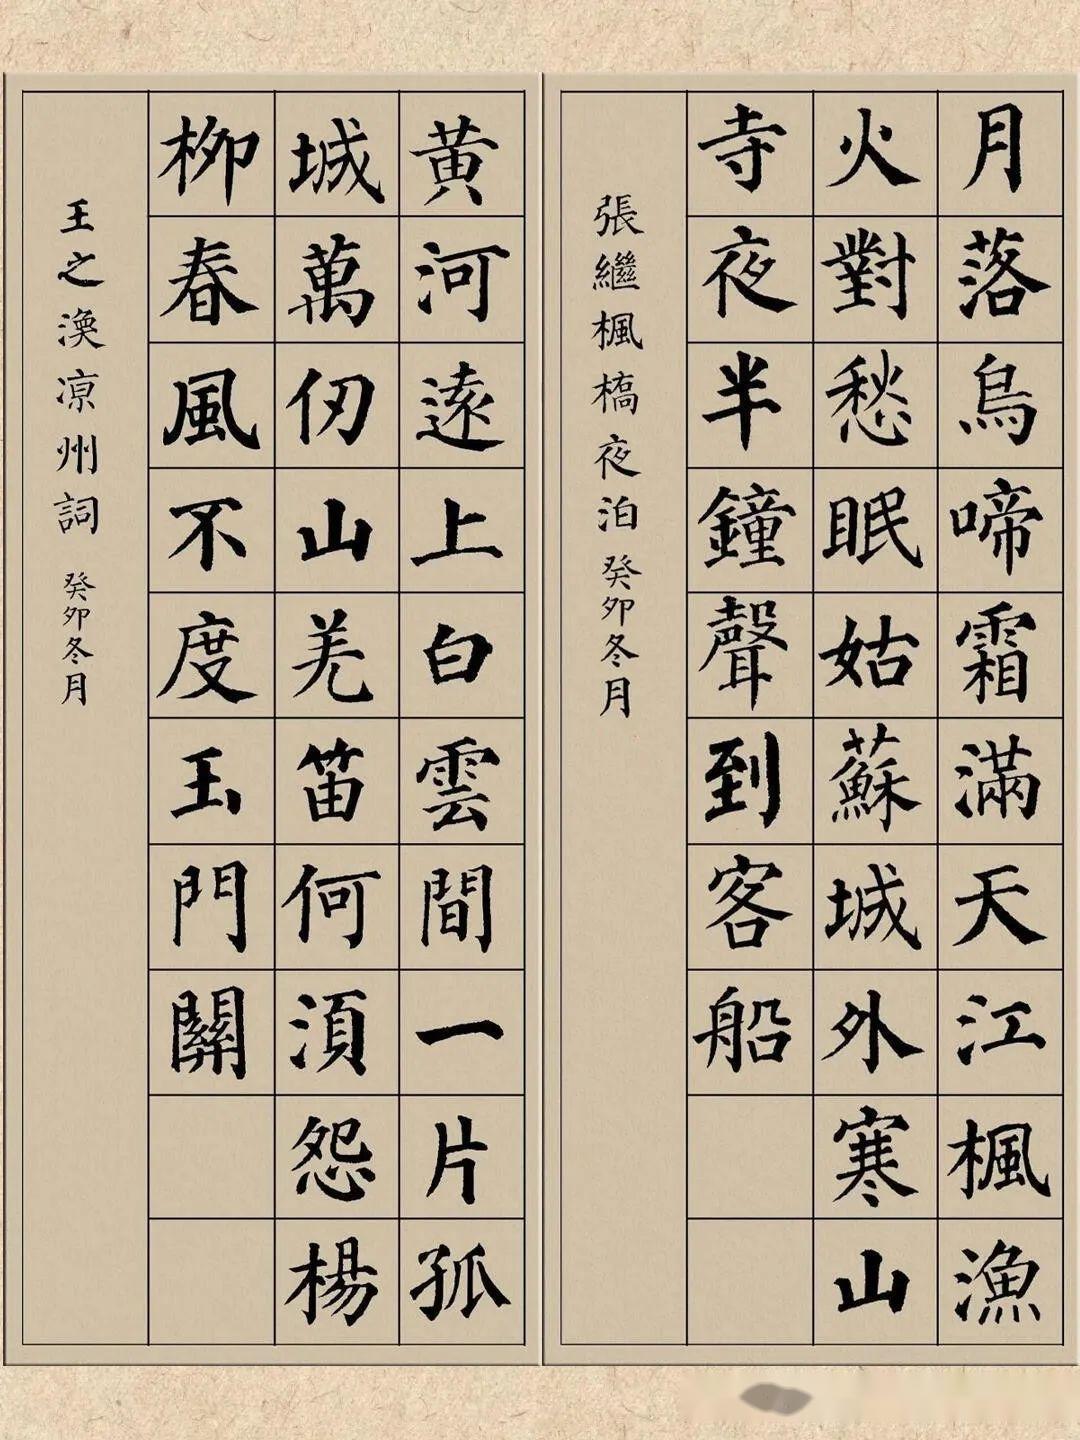 月落烏啼霜滿天江楓漁
火對愁眠姑蘇城外寒山
寺夜半鐘聲到客船
張繼楓橋夜泊 癸卯冬月
黄河遠上白雲間一片孤
城萬仞山羌笛何須怨楊
柳春風不度玉門關
王之渙凉州詞 癸卯冬月